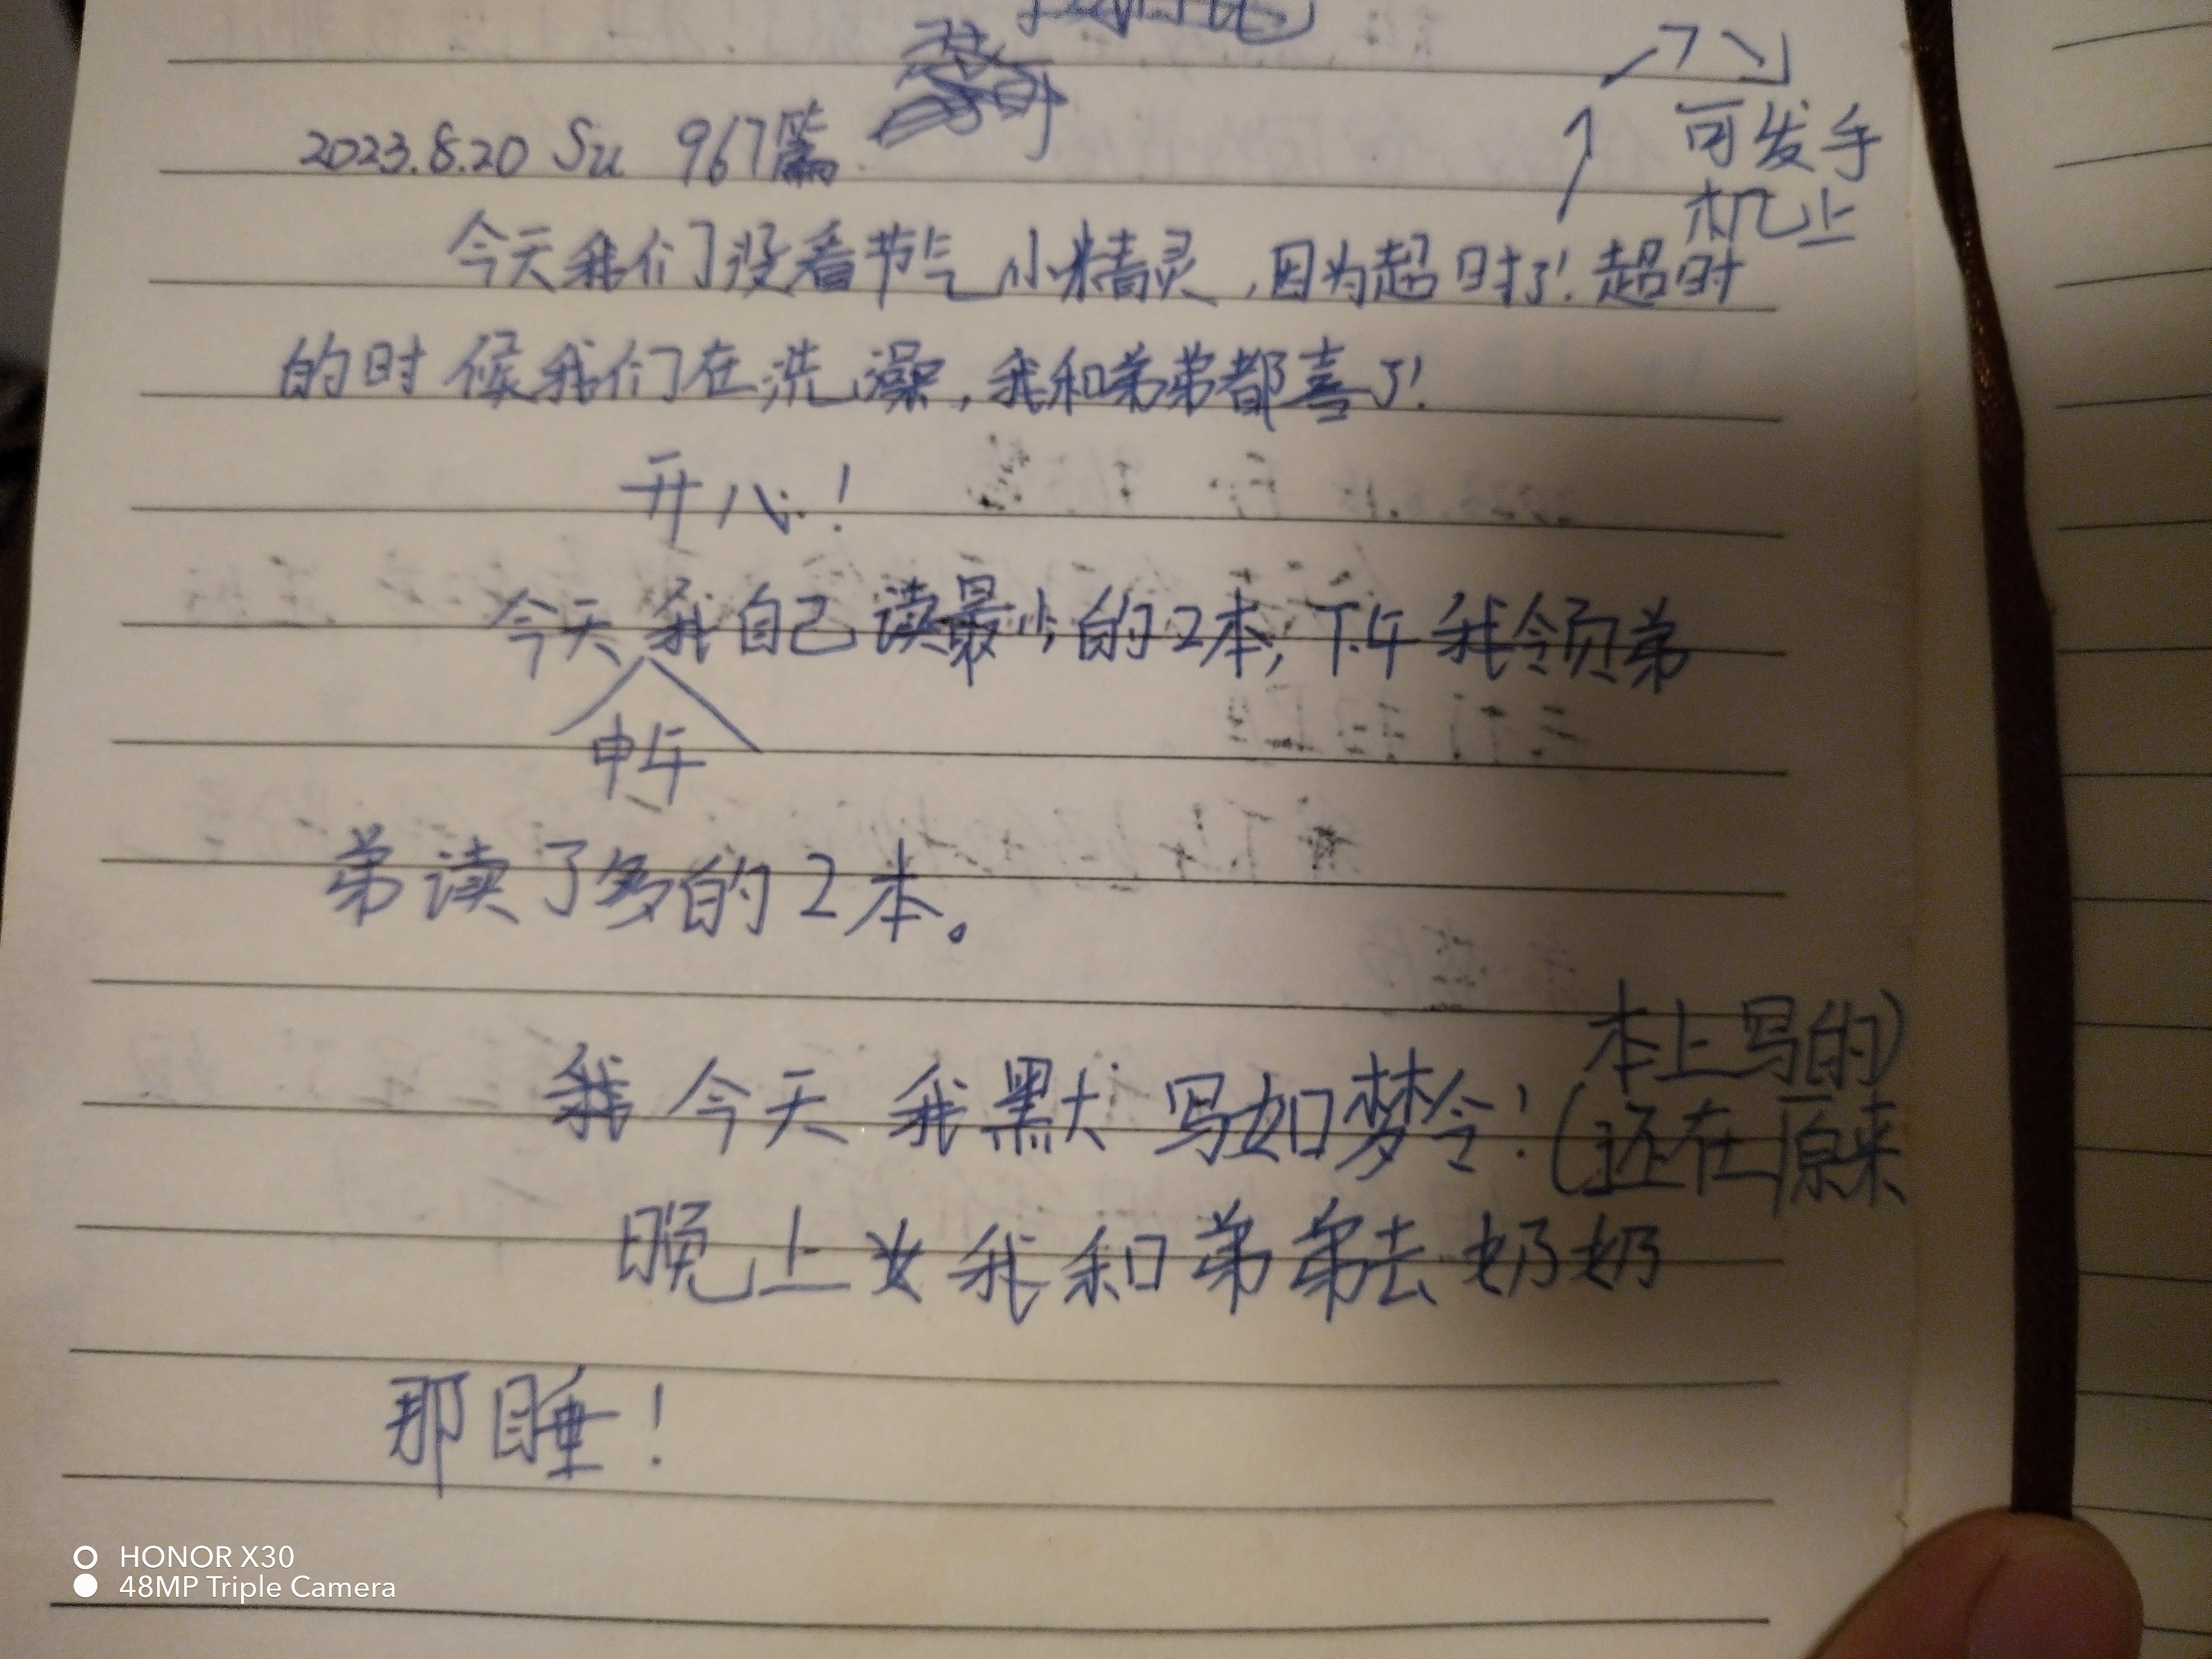 2023.8.20 Su 967篇
可发手
机上
今天我们没看节气小精灵，因为超时了！超时
的时候我们在洗澡，我和弟弟都喜了！
开心！
今天我自己读最少的2本，下午我领弟
中午
弟读了多的2本。
本上写的）
我今天我默写如梦令！（还在原来
晚上我和弟弟去奶奶
那睡！
HONOR X30
48MP Triple Camera